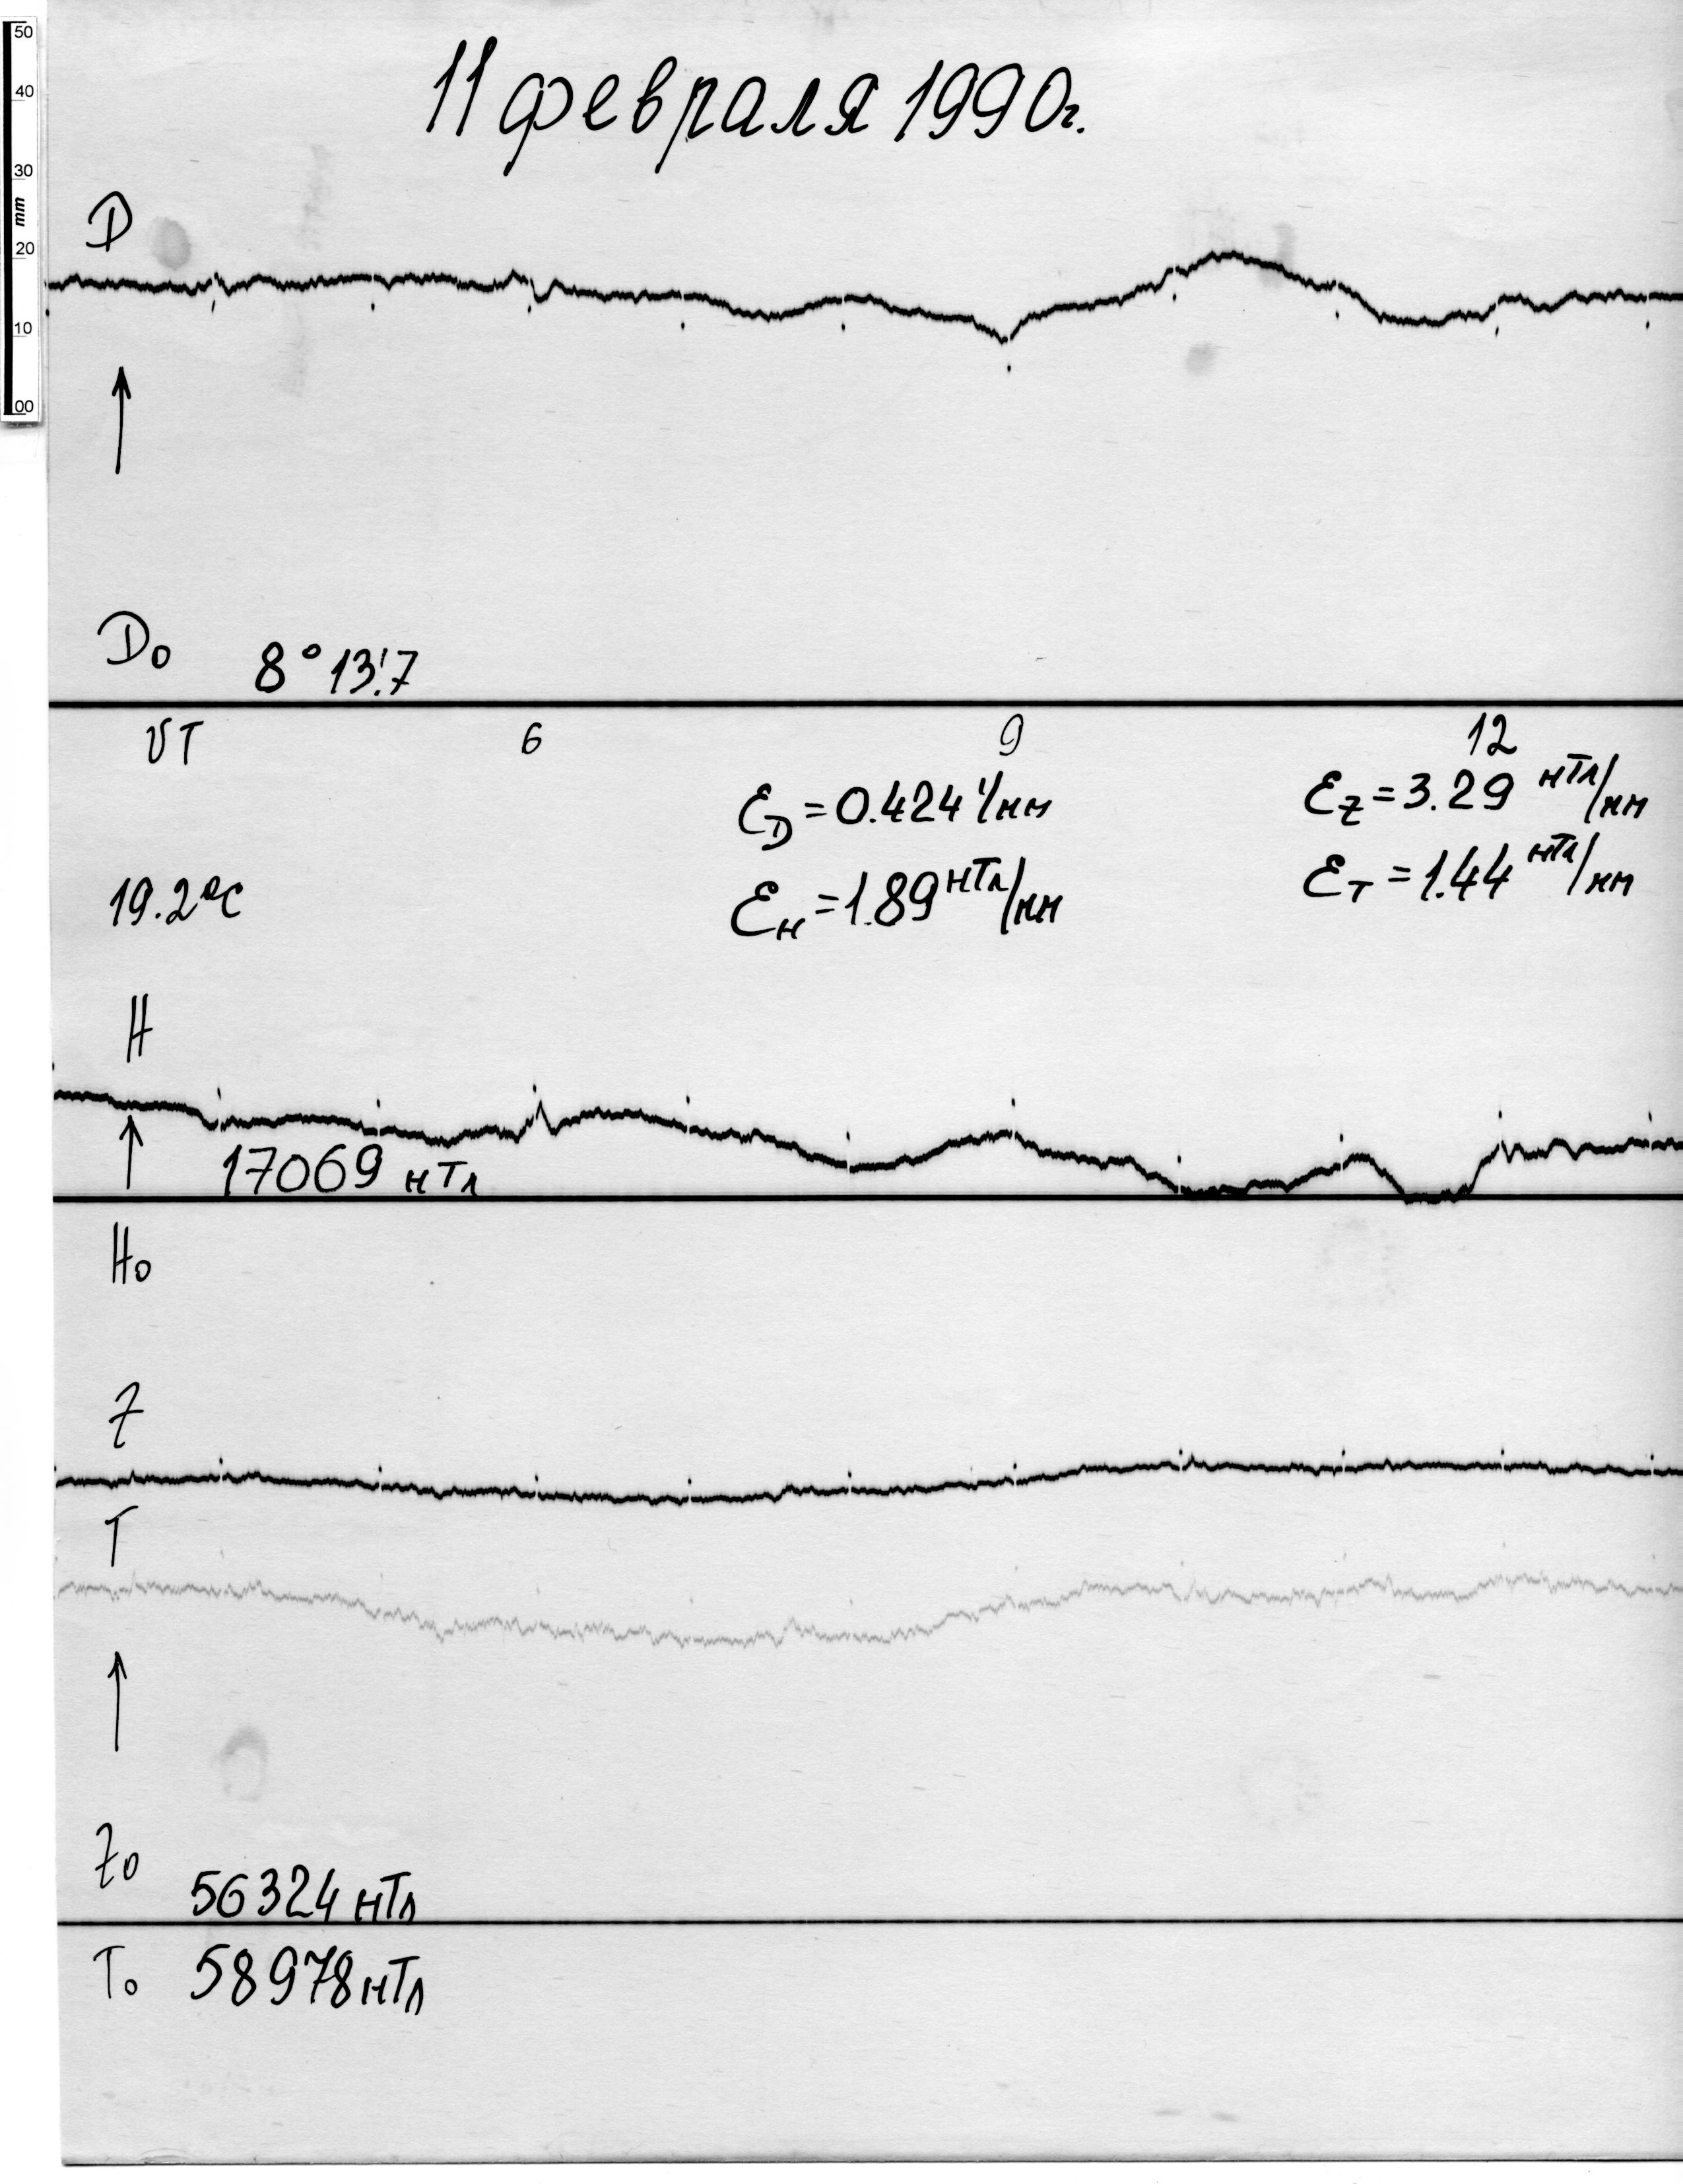 50
40
30
mm
20
10
00
11 февраля 1990г.
D
D₀ 8° 13'.7
UT 6 9 12
Ɛ_D = 0.424 '/мм Ɛ_Z = 3.29 нТл/мм
19.2°C Ɛ_H = 1.89 нТл/мм Ɛ_T = 1.44 нТл/мм
H
17069 нТл
H₀
Z
T
Z₀ 56324 нТл
T₀ 58978 нТл